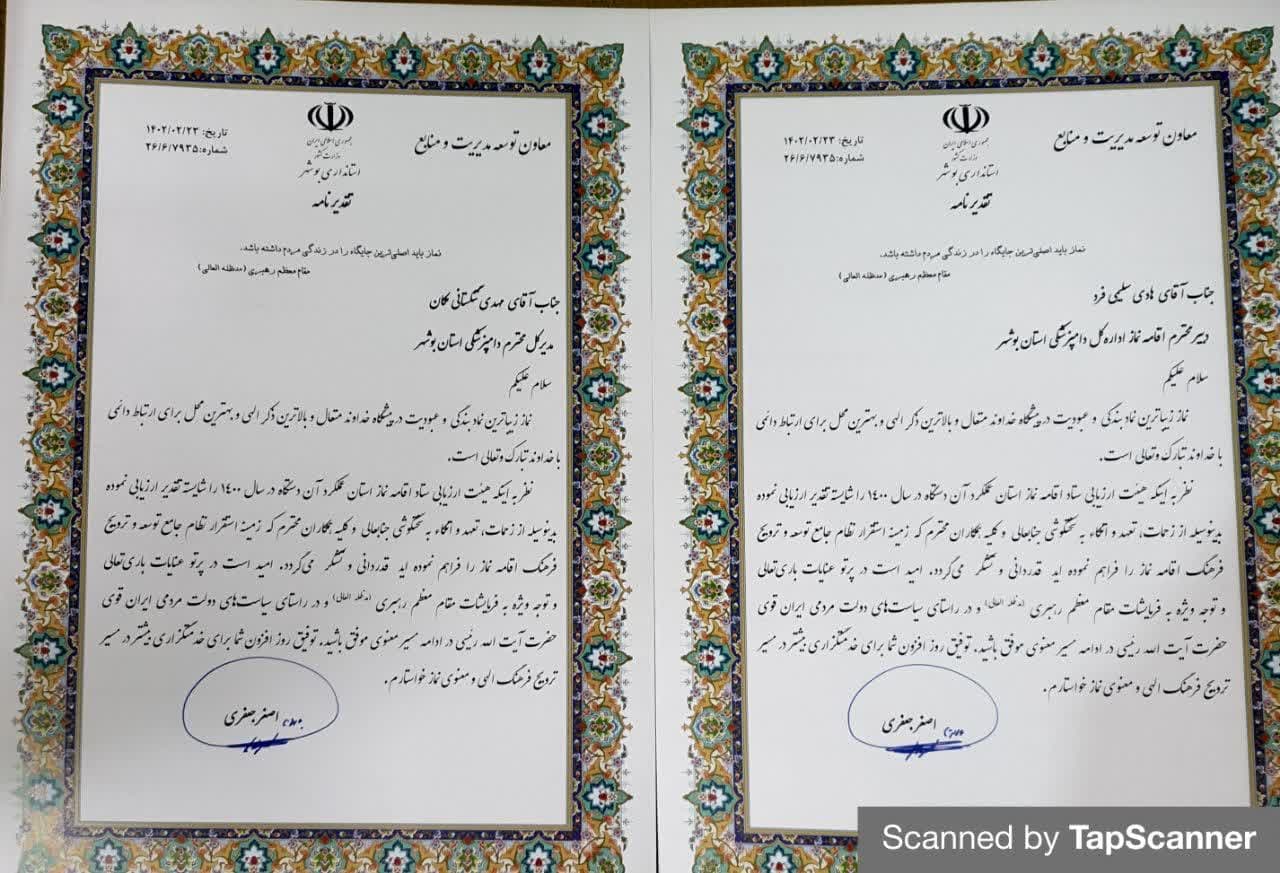 معاون توسعه مدیریت و منابع
جمهوری اسلامی ایران
وزارت کشور
استانداری بوشهر
تاریخ: ۱۴۰۲/۰۲/۲۳
شماره: ۲۶/۶/۷۹۳۵
تقدیرنامه
نماز باید اصلی‌ترین جایگاه را در زندگی مردم داشته باشد.
مقام معظم رهبری (مدظله العالی)
جناب آقای هادی سلیمی فرد
دبیر محترم اقامه نماز اداره کل دامپزشکی استان بوشهر
سلام علیکم
نماز زیباترین نماد بندگی و عبودیت در پیشگاه خداوند متعال و بالاترین ذکر الهی و بهترین محل برای ارتباط دائمی
با خداوند تبارک وتعالی است.
نظر به اینکه هیئت ارزیابی ستاد اقامه نماز استان عملکرد آن دستگاه در سال ۱۴۰۰ را شایسته تقدیر ارزیابی نموده
بدینوسیله از زحمات، تعهد و اتکاء به سختکوشی جنابعالی و کلیه همکاران محترم که زمینه استقرار نظام جامع توسعه و ترویج
فرهنگ اقامه نماز را فراهم نموده اید قدردانی و تشکر می‌گردد. امید است در پرتو عنایات باری‌تعالی
و توجه ویژه به فرمایشات مقام معظم رهبری (مدظله العالی) و در راستای سیاست‌های دولت مردمی ایران قوی
حضرت آیت الله رئیسی در ادامه مسیر معنوی موفق باشید. توفیق روز افزون شما برای خدمتگزاری بیشتر در مسیر
ترویج فرهنگ الهی و معنوی نماز خواستارم.
اصغر جعفری
معاون توسعه مدیریت و منابع
جمهوری اسلامی ایران
وزارت کشور
استانداری بوشهر
تاریخ: ۱۴۰۲/۰۲/۲۳
شماره: ۲۶/۶/۷۹۳۵
تقدیرنامه
نماز باید اصلی‌ترین جایگاه را در زندگی مردم داشته باشد.
مقام معظم رهبری (مدظله العالی)
جناب آقای مهدی تنگستانی کان
مدیرکل محترم دامپزشکی استان بوشهر
سلام علیکم
نماز زیباترین نماد بندگی و عبودیت در پیشگاه خداوند متعال و بالاترین ذکر الهی و بهترین محل برای ارتباط دائمی
با خداوند تبارک وتعالی است.
نظر به اینکه هیئت ارزیابی ستاد اقامه نماز استان عملکرد آن دستگاه در سال ۱۴۰۰ را شایسته تقدیر ارزیابی نموده
بدینوسیله از زحمات، تعهد و اتکاء به سختکوشی جنابعالی و کلیه همکاران محترم که زمینه استقرار نظام جامع توسعه و ترویج
فرهنگ اقامه نماز را فراهم نموده اید قدردانی و تشکر می‌گردد. امید است در پرتو عنایات باری‌تعالی
و توجه ویژه به فرمایشات مقام معظم رهبری (مدظله العالی) و در راستای سیاست‌های دولت مردمی ایران قوی
حضرت آیت الله رئیسی در ادامه مسیر معنوی موفق باشید. توفیق روز افزون شما برای خدمتگزاری بیشتر در مسیر
ترویج فرهنگ الهی و معنوی نماز خواستارم.
اصغر جعفری
Scanned by TapScanner